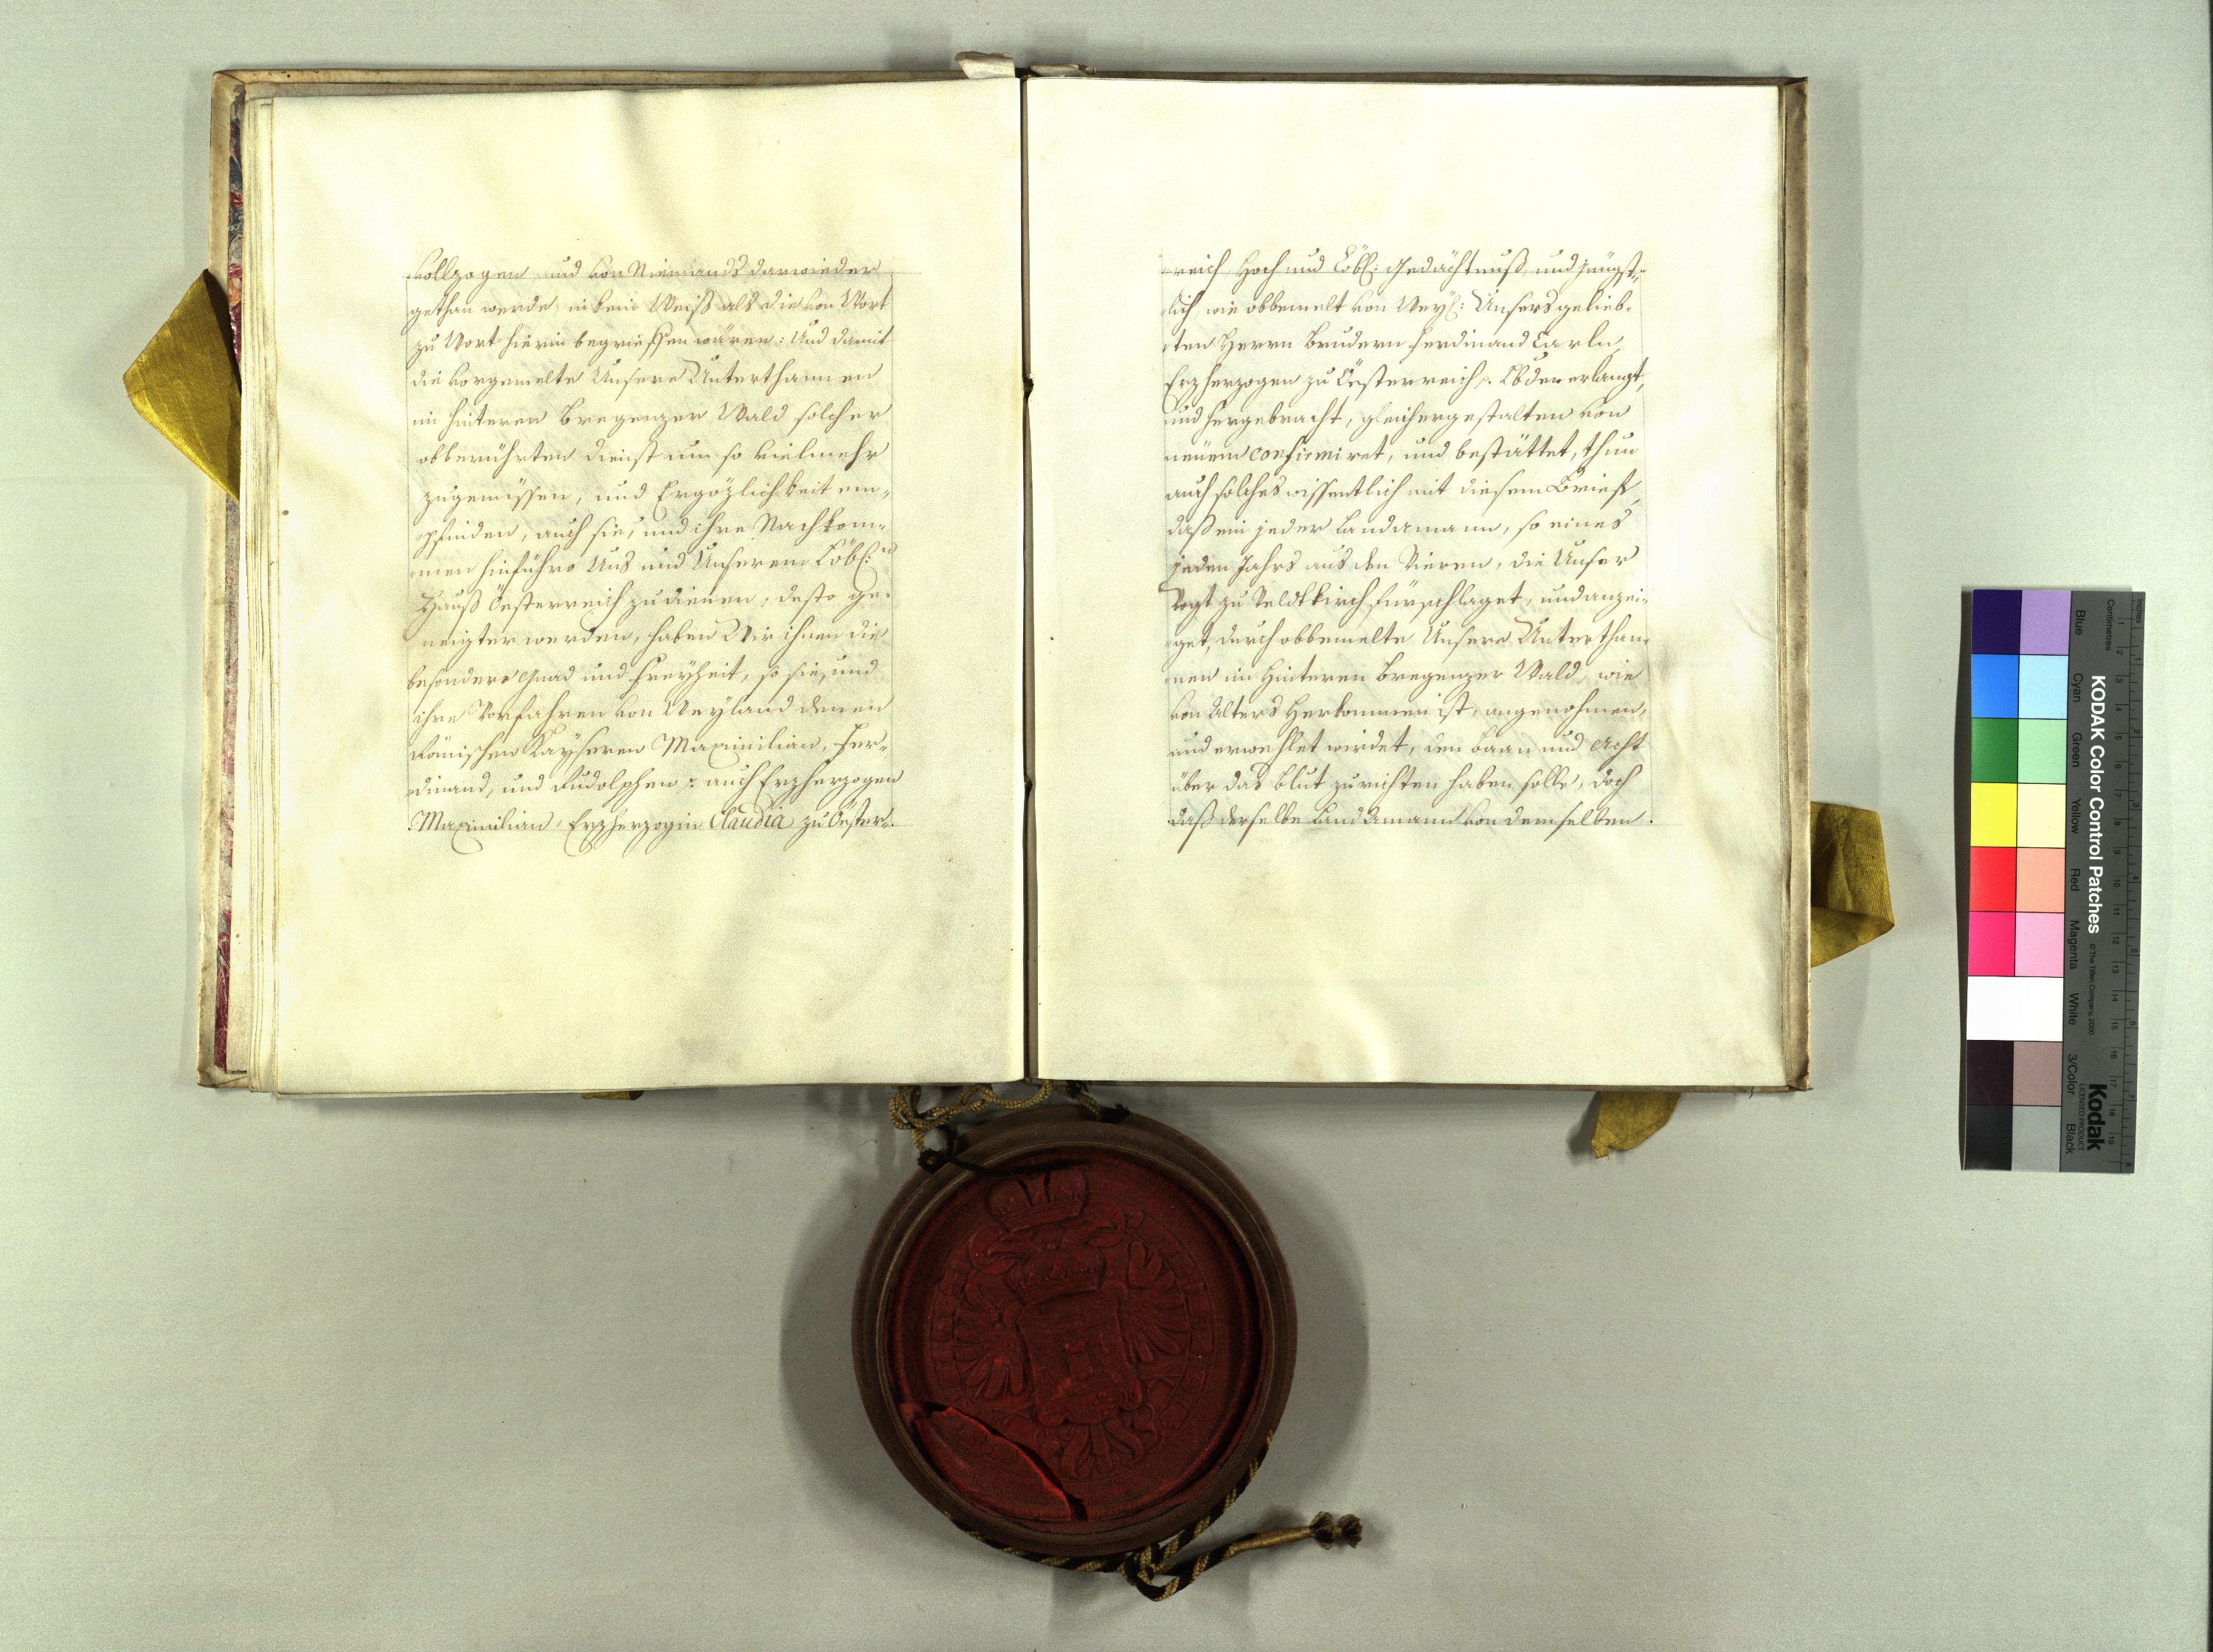 vollzogen und von Niemands darwieder
gethan werde, in kein Weiß als die von Wort
zu Wort hierin begrieffen wären: Und damit
die vorgemelte Unsere Unterthannen
im hinteren Bregenzer Wald solcher
obberührten dienst um so vielmehr
zugeniessen, und Ergözlichkeit em-
pfinden, auch sie, und ihre Nachkom-
men hinführo Uns und Unserem Löbl:n
Hauß Oesterreich zu dienen, desto ge-
neigter werden, haben Wir ihnen die
besondere Gnad und Freyheit, so sie, und
ihre Vorfahren von Weyland denen
Römischen Kayseren Maximilian, Fer-
dinand, und Rudolphen :. auch Erzherzogen
Maximilian, Erzherzogin Claudia zu Öster-
reich, Hoch und Löbl: Gedächtnuß, und jüngst-
lich wie obbemelt von Weyl: Unsers gelieb-
ten Herrn Brudern Ferdinand Carln,
Erzherzogen zu Oesterreich :. Lbden erlangt,
und hergebracht, gleichergestalten von
neuem confirmiret, und bestättet, thun
auch solches wissentlich mit diesem Brief,
daß ein jeder Landamann, so eines
jeden Jahrs aus den Vieren, die Unser
Vogt zu Veldtkirch fürschlaget, und anzei-
get, durch obbemelte Unsere Unterthan-
nen im Hinteren Bregenzer Wald, wie
von Alters Herkommen ist, angenohmen,
und erwehlet wirdet, den baan und Acht
über das Blut zurichten haben solle, doch
daß derselbe Landamann von demselben
KODAK Color Control Patches
Kodak
LICENSED PRODUCT
© The Tiffen Company, 2000
Inches
Centimetres
Blue Cyan Green Yellow Red Magenta White 3/Color Black